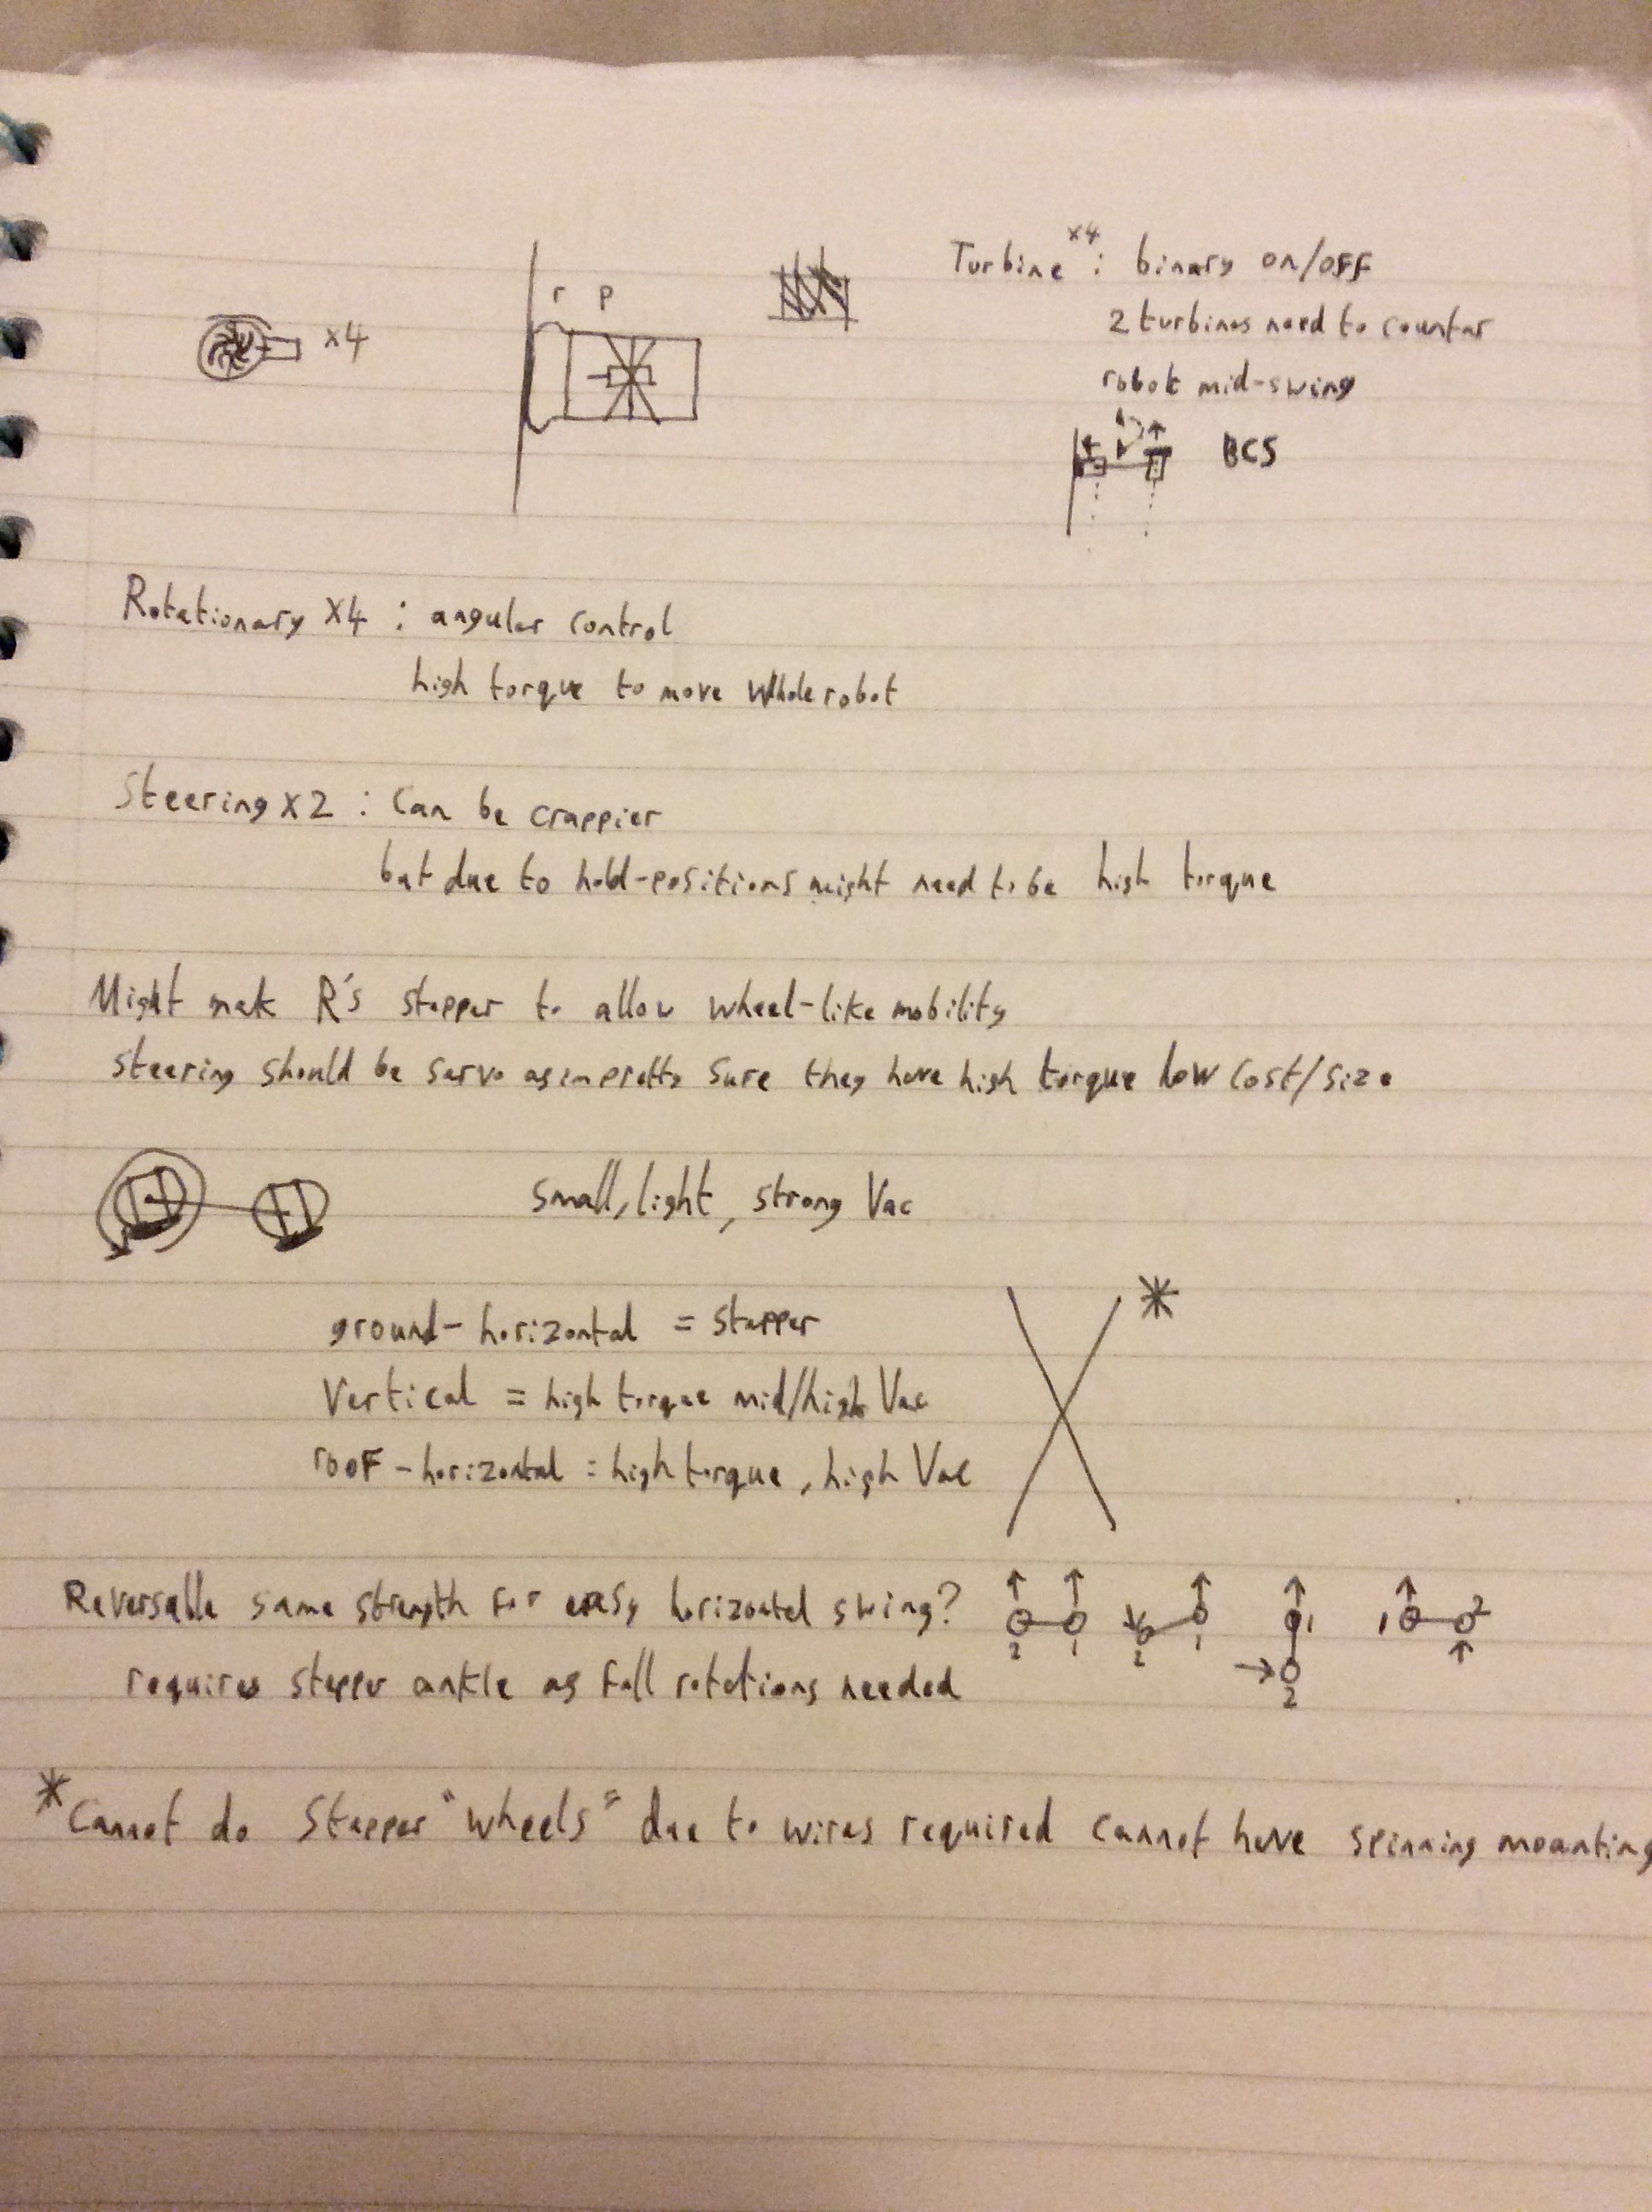 x4
r p
Turbine x4 : binary on/off
2 turbines need to counter
robot mid-swing
BCS
Rotationary x4 : angular control
high torque to move whole robot
Steering x2 : Can be crappier
but due to hold-positions might need to be high torque
Might mak R's stepper to allow wheel-like mobility
steering should be servo as im pretty sure they have high torque low cost/size
small, light, strong Vac
ground-horizontal = stepper
Vertical = high torque mid/high Vac
roof-horizontal = high torque, high Vac
*
Reversable same strength for easy horizontal swing?
2 1 2 1 1 2 1 2
requires stepper ankle as full rotations needed
* Cannot do Stepper "wheels" due to wires required cannot have spinning mounting